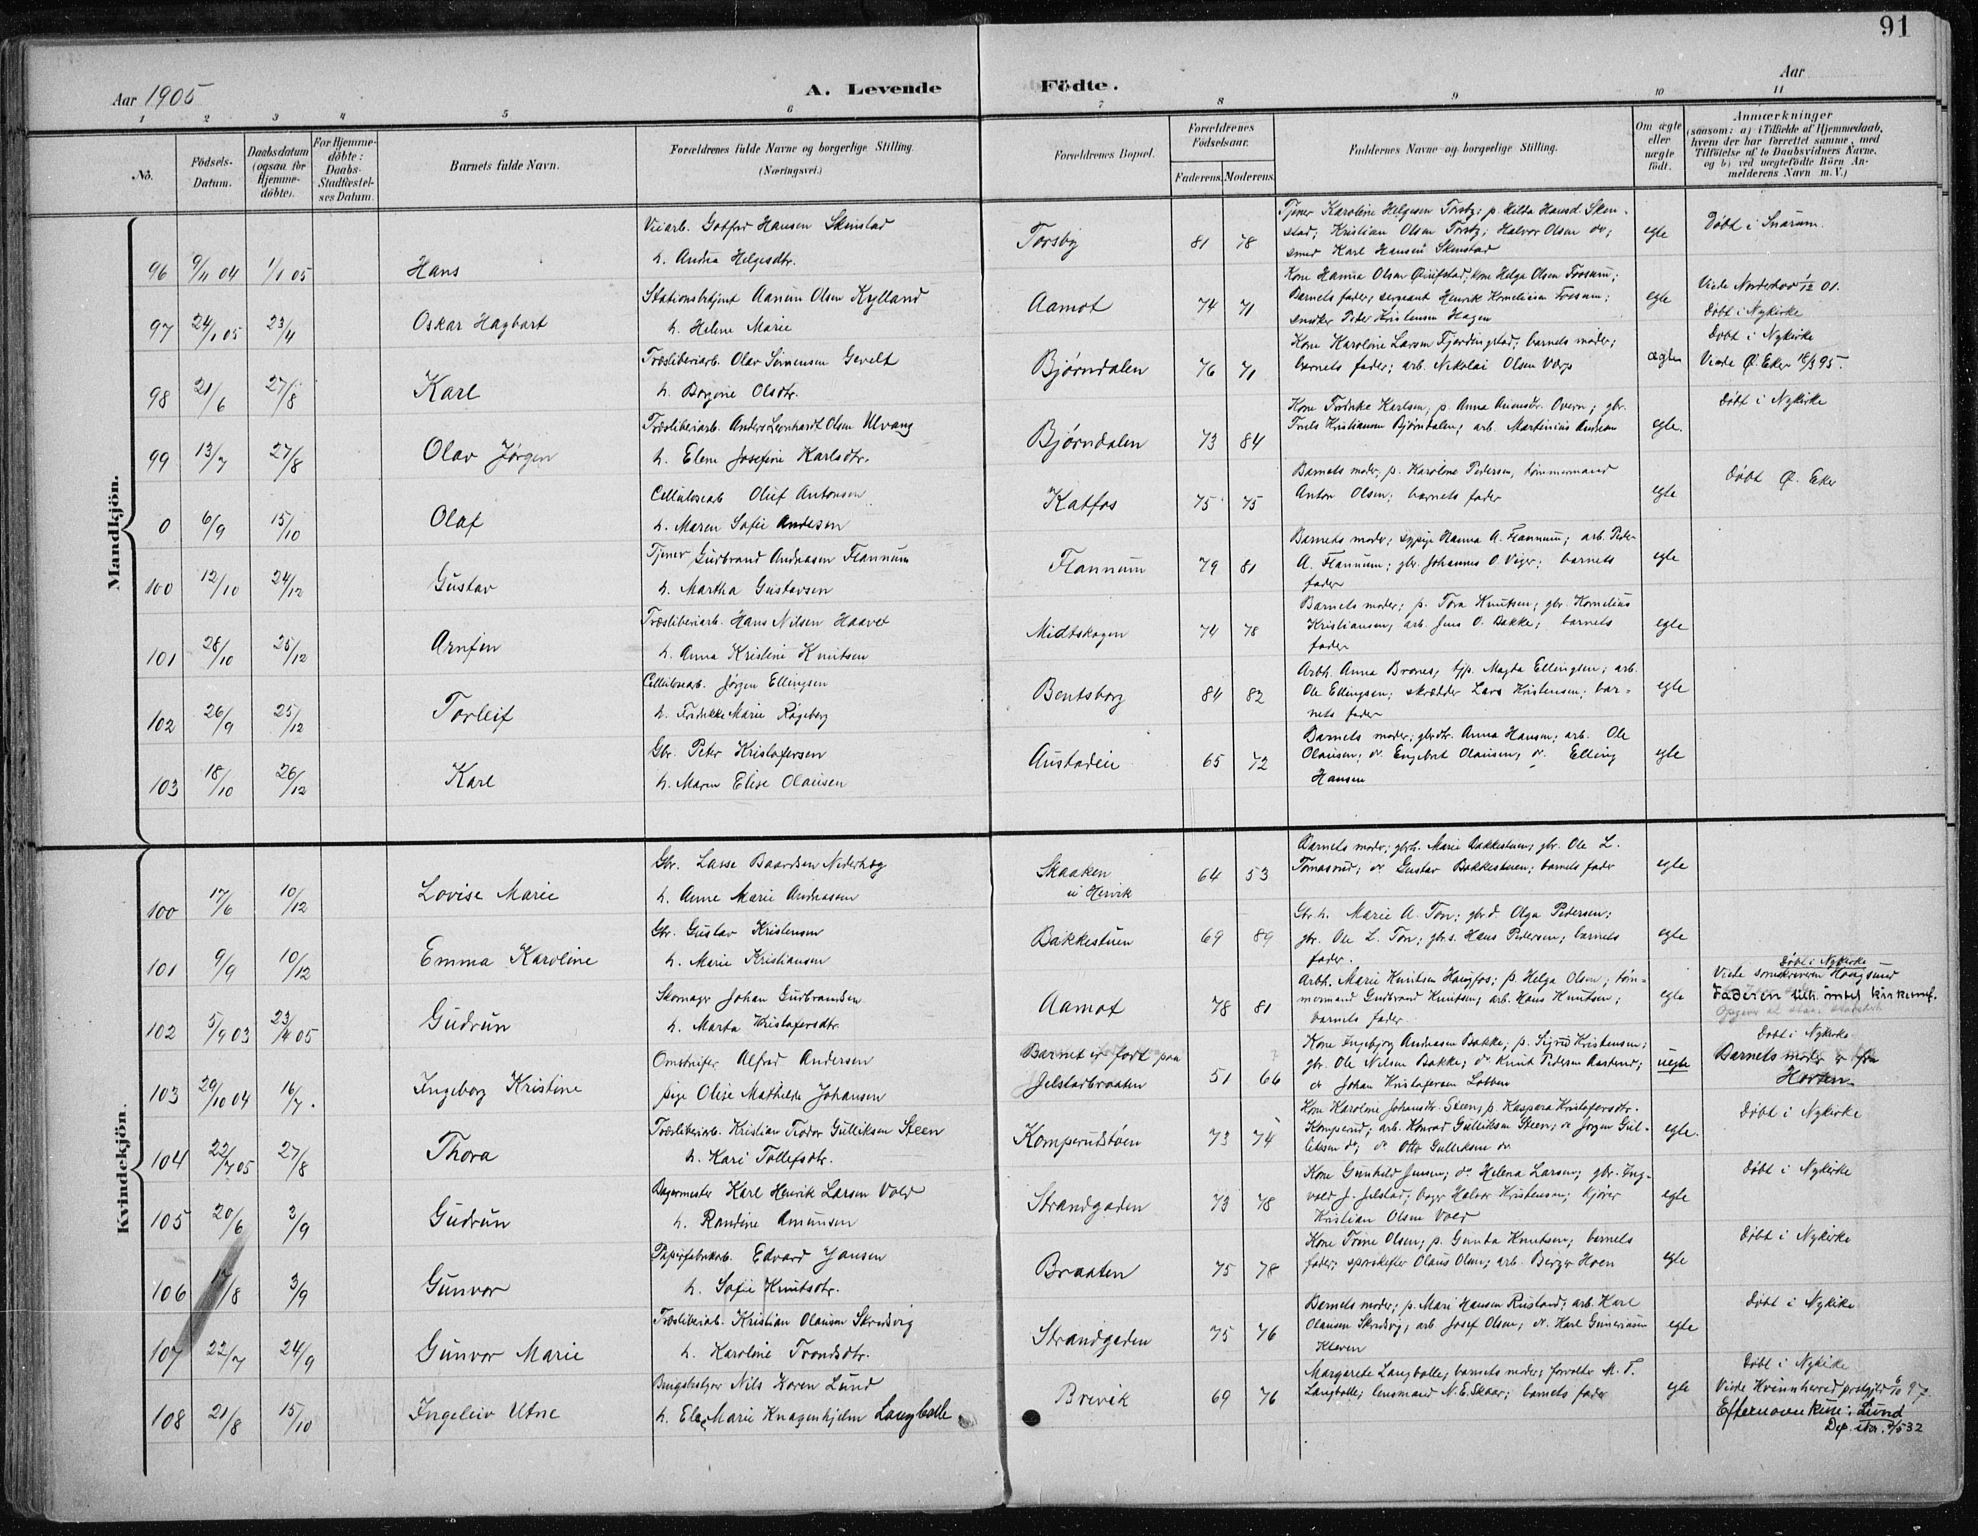 91
Aar 1905
A. Levende Födte.
Aar
1 2 3 4 5 6 7 8 9 10 11
No.
Födsels-Datum.
Daabsdatum (ogsaa for Hjemmedöbte).
For Hjemmedöbte: Daabs-Stadfæstelses Datum.
Barnets fulde Navn.
Forældrenes fulde Navne og borgerlige Stilling. (Næringsvei.)
Forældrenes Bopæl.
Forældrenes Födselsaar.
Faderens. Moderens.
Faddernes Navne og borgerlige Stilling.
Om ægte eller uægte födt.
Anmærkninger
(saasom: a) i Tilfælde af Hjemmedaab, hvem der har forrettet samme, med Tilföielse af to Daabsvidners Navne, og b) ved uægtefödte Börn Anmelderens Navn m. V.)
Mandkjön.
96 9/11 04 1/1 05 Hans
Veiarb. Gotfred Hansen Skinstad
h. Andrea Helgesdtr.
Torsby 81 78
Tjener Karoline Helgesen Torsby; p. Hilda Hansd. Sken-
stad; Kristian Olsen Torsby; Halvor Olsen do;
smed Karl Hansen Skenstad
egte
Døbt i Snarum
97 24/1 05 23/4 Oskar Hagbart
Stationsbetjent Aanun Olsen Kylland
h. Helene Marie
Aamot 74 71
Barnets fader; sergeant Henrik Korneliusen Fossum;
snekker Peter Kristensen Hagen
egte
Viede Norderhov 1/12 01.
Døbt i Nykirke
98 21/6 27/8 Karl
Træsliberiarb. Olav Simensen Gevelt
h. Borgine Olsdtr.
Bjørndalen 76 71
Kone Karoline Larsen Fjerdingstad; barnets moder;
barnets fader; arb. Nikolai Olsen Vorp
ægte
Døbt i Nykirke
99 13/7 27/8 Olav Jørgen
Træsliberiarb. Anders Leonhardt Olsen Ulvang
h. Elene Josefine Karlsdtr.
Bjørndalen 73 84
Truls Kristiansen Bjørndalen; arb. Martinius Aamon
egte.
Døbt i Nykirke
0 6/9 15/10 Olaf
Cellulosearb Oluf Antonsen
h. Maren Sofie Andersen
Katfos 75 75
Barnets moder, p. Karoline Pedersen, tømmermand
Anton Olsen; barnets fader
egte
Døbt Ø. Eker
100 12/10 24/12 Gustav
Tjener Gudbrand Andreasen Flannum
h. Martha Gustavsen
Flannum 79 81
Barnets moder; sypige Hanna A. Flannum; arb. Peder
A. Flannum; gbr. Johannes O. Viger; barnets
fader
egte
101 28/10 25/12 Arnfin
Træsliberiarb. Hans Nilsen Haavet
h. Anna Kristine Knutsen
Midtskogen 74 78
Barnets moder; p. Tora Knutsen; gbr. Kornelius
Kristiansen; arb. Jens O. Bakke; barnets
fader
egte
102 26/9 25/12 Torleif
Cellulosearb. Jørgen Ellingsen
h. Fredrikke Marie Røgeberg
Bentsborg 84 82
Arbh. Anna Brones; tjp. Magda Ellingsen; arb.
Ole Ellingsen; skrædder Lars Kristensen; bar-
nets fader
egte
103 18/10 26/12 Karl
Gbr. Peter Kristofersen
h. Maren Elise Olausen
Austadeie 65 72
Barnets moder; gbrdtr. Anna Hansen; arb. Ole
Olausen; do Engebret Olausen; do. Elling
Hansen
egte
Kvindekjön.
100 17/6 10/12 Lovise Marie
Gbr. Lasse Baardsen Nederhag
h. Anne Marie Andreassen
Skaaken
64 53
Barnets moder; gbrh. Marie Bakkestuen; gbr. Ole L.
Tomasrud; do Gustav Bakkestuen; barnets fader
egte
101 9/9 10/12 Emma Karoline
Gbr. Gustav Kristensen
h. Marie Kristiansen
Bakkestuen 69 89
Gbr.h. Marie A. Ton; gbrd. Olga Pedersen;
gbr. Ole L. Ton; gbr.s. Hans Pedersen; barnets
fader.
egte
102 5/9 03 23/4 05 Gudrun
Skomager Johan Gudbrandsen
h. Marta Kristofersdtr.
Aamot 78 81
Arbh. Marie Knutsen Haugfos; p. Helga Olsen; tøm-
mermand Gudbrand Knutsen; arb. Hans Knutsen;
barnets fader
egte
Døbt i Nykirke
Viede sorenskriveren Haugsund
103 29/10 04 16/7. Ingeborg Kristine
Omstreifer Alfred Andersen
pige Olise Mathilde Johansen
Barnet er født paa
Jelstadbraaten 51 66
Kone Ingeborg Andreasen Bakke; p. Sigrid Kristensen;
gbr. Ole Nilsen Bakke; do Knut Pedersen Aasterud;
do Johan Kristofersen Lobben
uegte
Døbt i Nykirke
Barnets moder er fra
Horten
104 22/7 05 27/8 Thora
Træsliberiarb. Kristian Teodor Gulliksen Steen
h. Kari Tollefsdtr.
Komperudstøen 73 74
Kone Karoline Johansdtr. Steen; p. Kaspara Kristofersdtr.
Komperud; arb. Konrad Gulliksen Steen; do Jørgen Gul-
liksen do; do Otto Gulliksen do
egte.
Døbt i Nykirke
105 20/6 3/9 Gudrun
Bagermester Karl Henrik Larsen Vold
h. Randine Amunsen
Strandgaden 73 78
Kone Gunhild Jensen; do Helena Larsen; gbr. Ing-
vold J. Jelstad; bager Halvor Kristensen; kjører
Kristian Olsen Vold
egte
Døbt i Nykirke
106 17/8 3/9 Gunvor
Papirfabrikarb. Edvard Jansen
h. Sofie Knutsdtr.
Braaten 75 78
Kone Trine Olsen; p. Gunda Knutsen; barnets
fader; sporskifter Olaus Olsen; arb. Birger Hoen
egte
Døbt i Nykirke
107 22/7 24/9 Gunvor Marie
Træsliberiarb. Kristian Olausen Skredsvig
h. Karoline Trondsdtr.
Strandgaden 75 76
Barnets moder; p. Mari Hansen Rustand; arb. Karl
Olausen Skredsvig; arb Josef Olsen; do. Karl Gunerius
Kleven
egte
Døbt i Nykirke
108 21/8 15/10 Ingeleiv Utne
Brugsbestyrer Nils Koren Lund
h. Ela Marie Knagenhjelm Langballe
Brevik 69 76
Margarete Langballe; barnets moder; forvalter M. T.
Langballe; lensmand N. E. Skaar; barnets fader
egte
Døbt i Nykirke
Viede Kvinnherred prestgjeld 6/10 97.
Efternavn kun: Lund